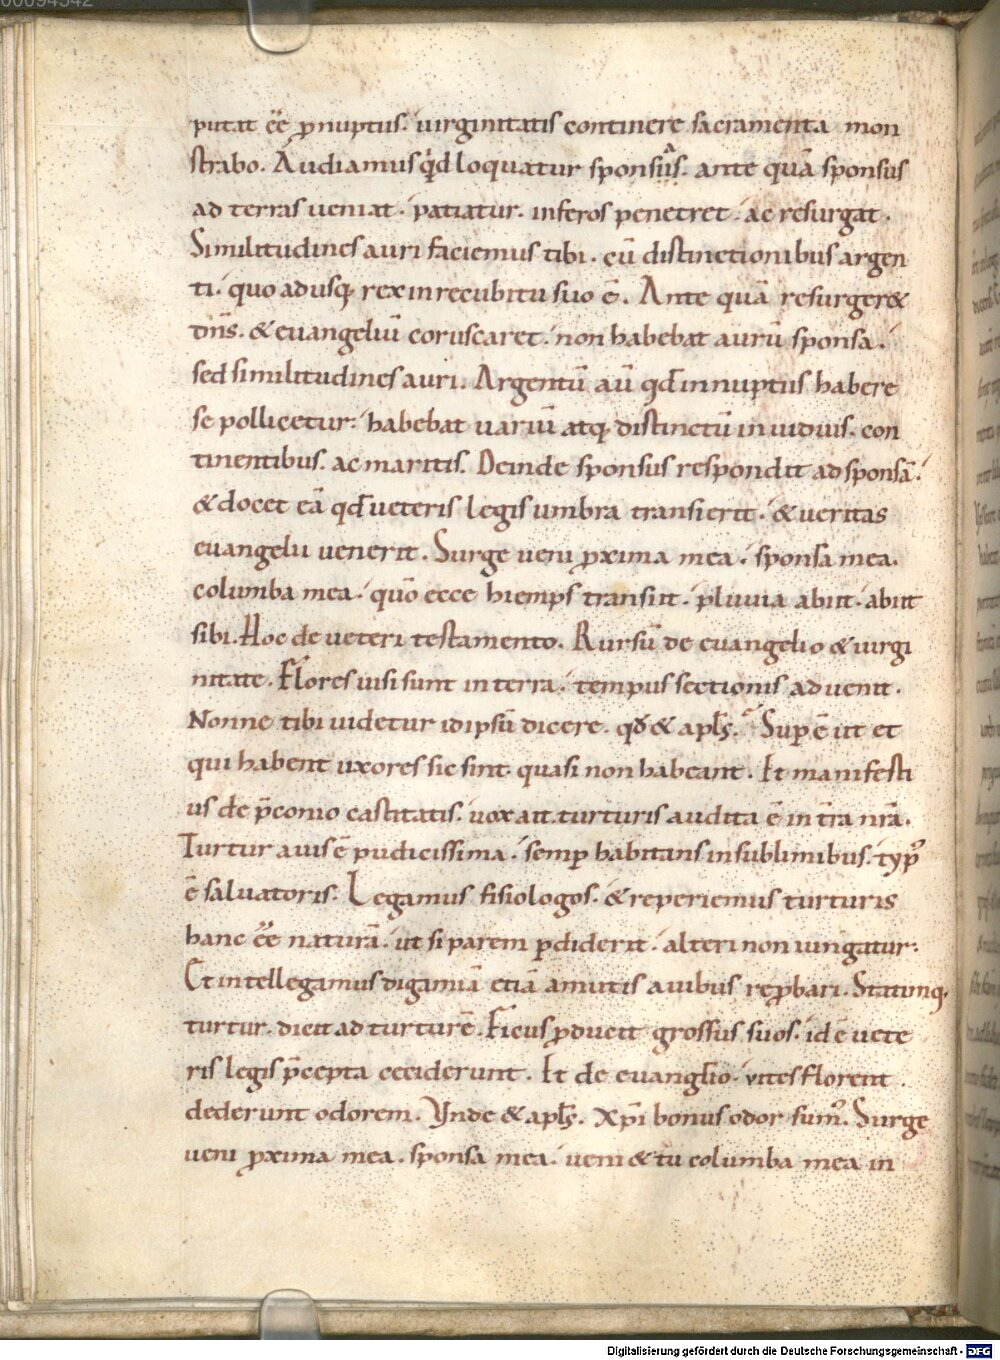 00094542
putat eē p̄nuptus. uirginitatis continere sacramenta mon
strabo. Audiamus qd loquatur sponsus. ante quā sponsus
ad terras ueniat. patiatur. inferos penetret. ac resurgat.
Similitudines auri faciemus tibi. cū distinctionibus argen
ti. quo adusq; rex in recubitu suo ē. Ante quā resurger&
dn̄s. & euangeliū coruscaret. non habebat aurū sponsa.
sed similitudines auri. Argentū aū qd̄ in nuptiis habere
se pollicetur. habebat uariū atq; distinctū in uiduis. con
tinentibus. ac maritis. Deinde sponsus respondit ad sponsā.
& docet eā qd̄ ueteris legis umbra transierit. & ueritas
euangelii uenerit. Surge ueni ꝓxima mea. sponsa mea.
columba mea. quō ecce hiemps transiit. pluuia abiit. abiit
sibi. Hoc de ueteri testamento. Rursū de euangelio & uirgi
nitate. Flores uisi sunt in terra. tempus sectionis aduenit.
Nonne tibi uidetur idipsū dicere. qd & apl̄s. Sup ē ut et
qui habent uxores sic sint. quasi non habeant. Et manifesti
us de p̄conio castitatis. uox ait turturis audita ē in tr̄a nr̄a.
Turtur auis ē pudicissima. semp habitans in sublimibus. typ
ē saluatoris. Legamus fisiologos. & reperiemus turturis
hanc eē naturā. ut si parem ꝑdiderit. alteri non iungatur.
Et intellegamus digamiā etiā a mutis auibus reꝓbari. Statimq;
turtur. dicit ad turturē. Ficus ꝓduxit grossus suos. id ē uete
ris legis p̄cepta ceciderunt. Et de euanglio. uites florent
dederunt odorem. Vnde & apl̄s. xp̄i bonus odor sum. Surge
ueni ꝓxima mea. sponsa mea. ueni & tu columba mea in
Digitalisierung gefördert durch die Deutsche Forschungsgemeinschaft - DFG